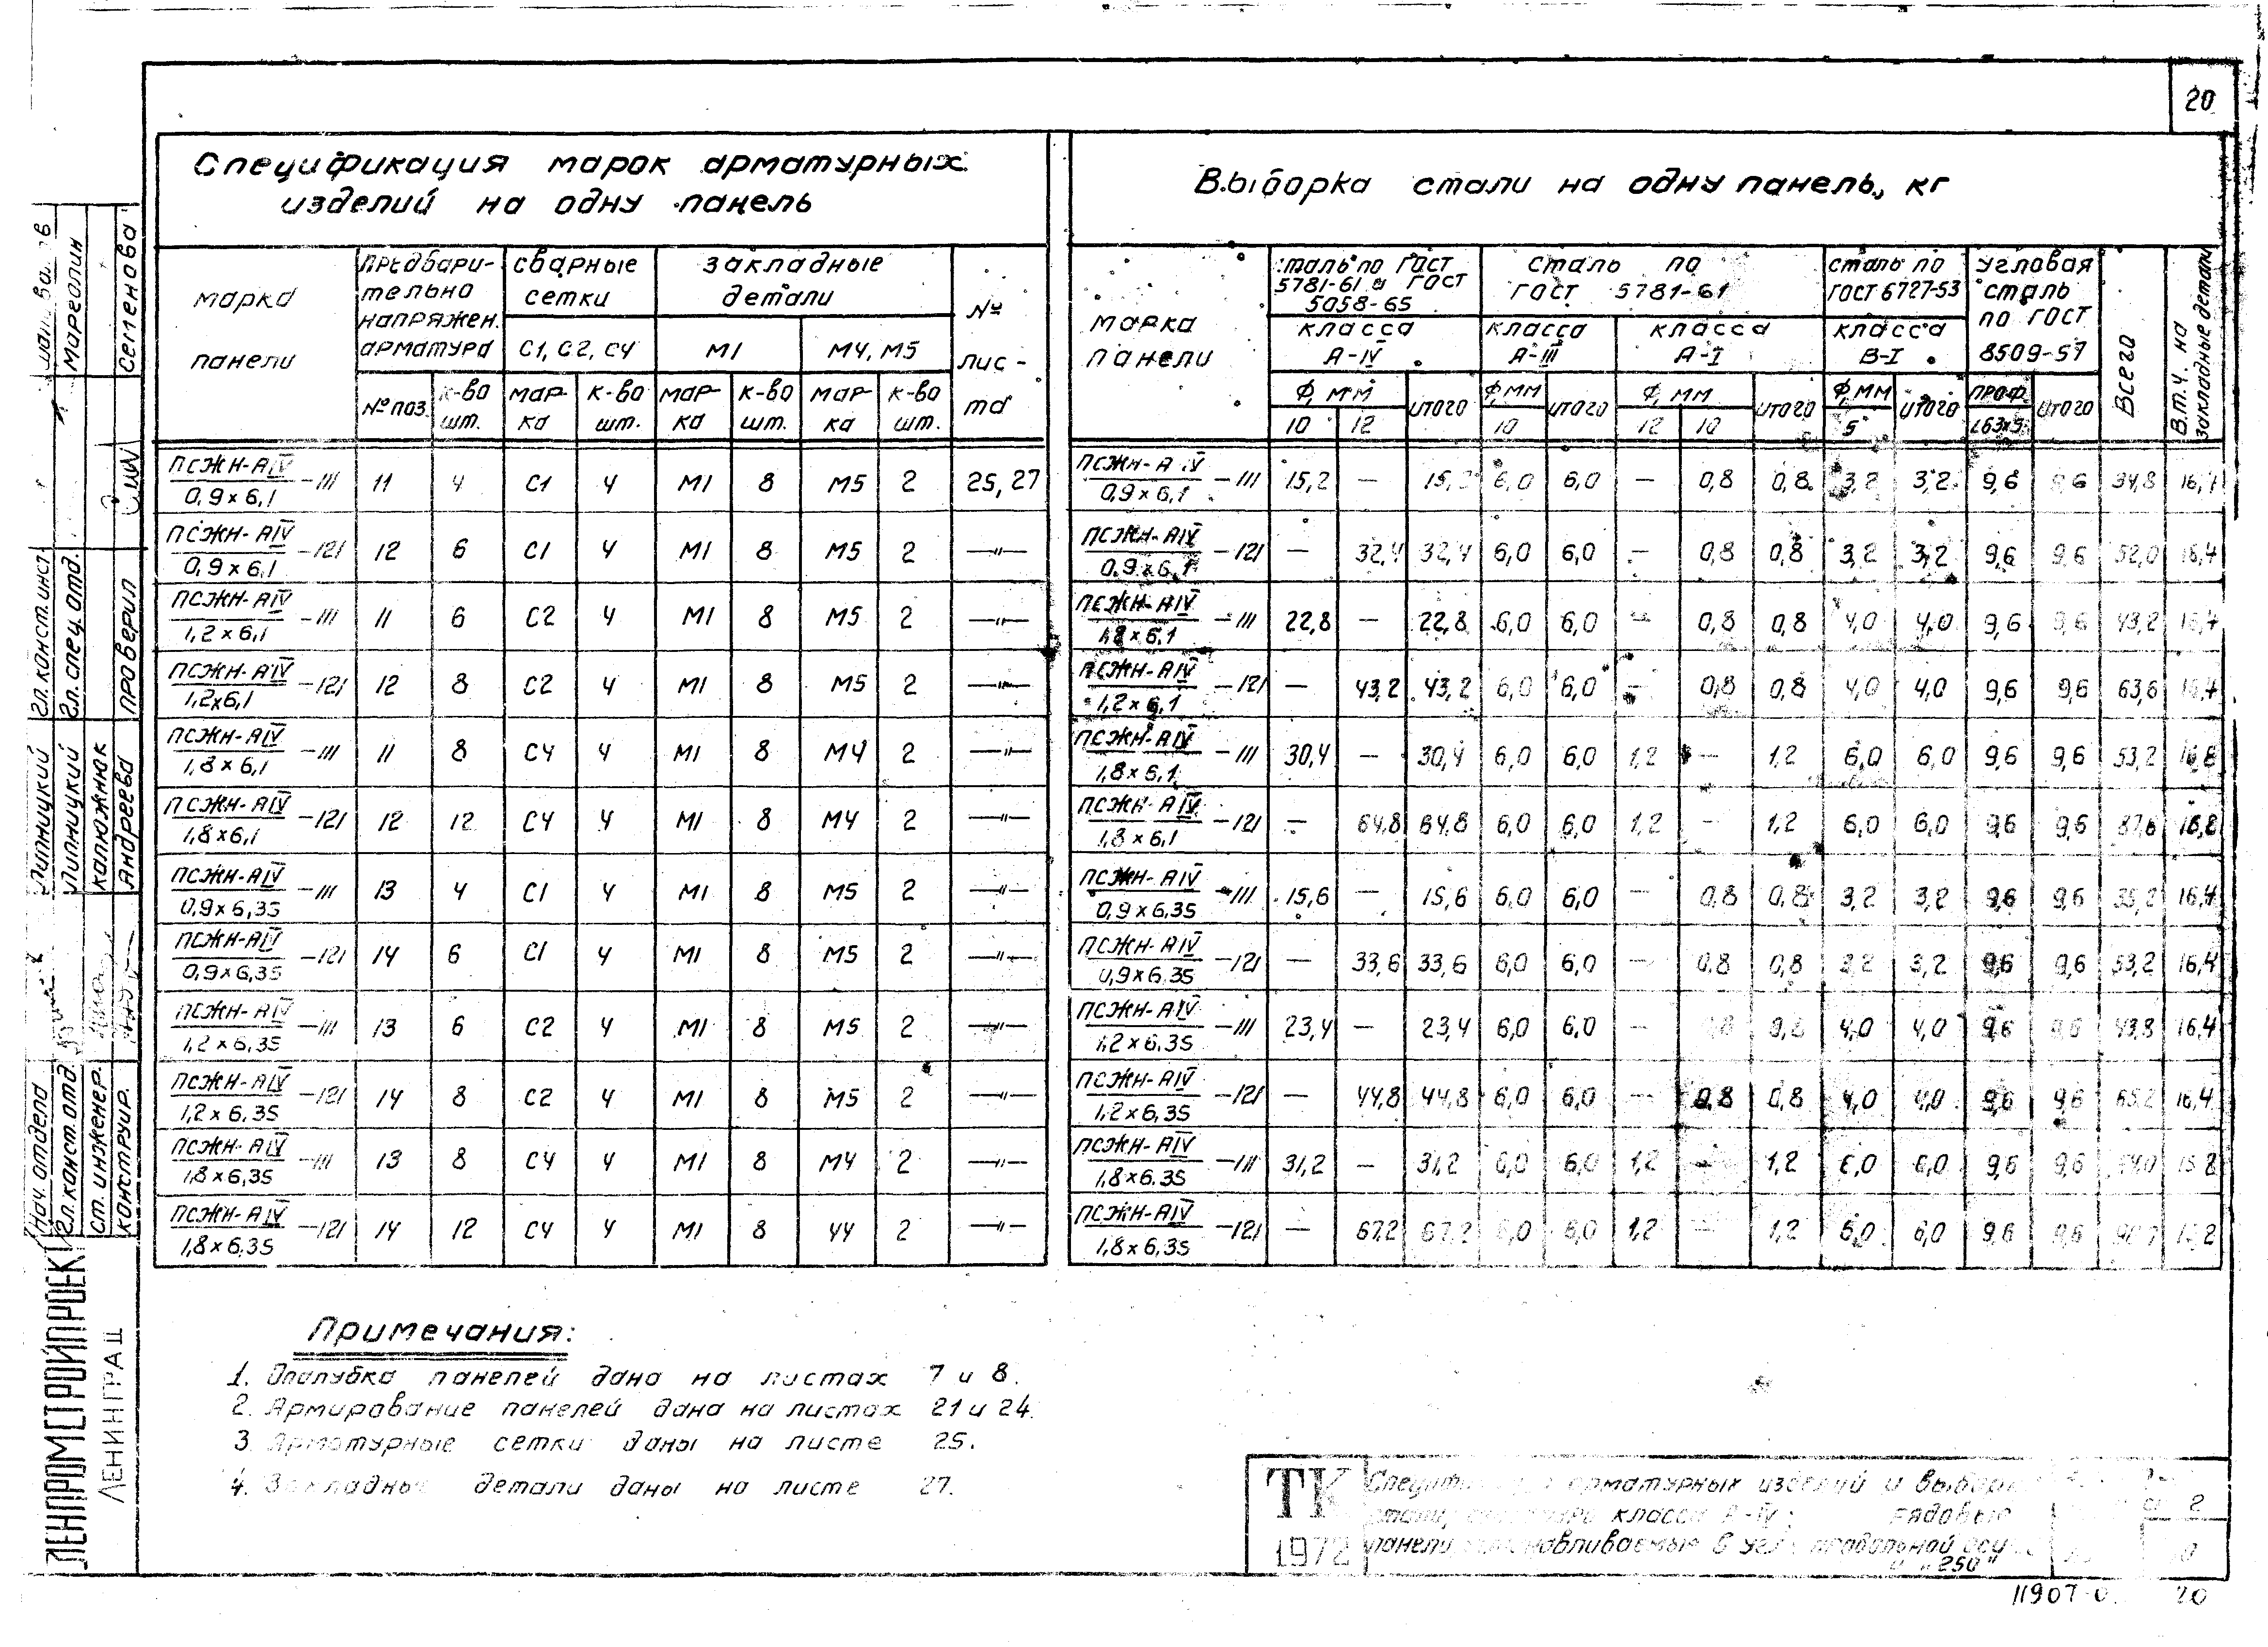 20
Спецификация марок арматурных
изделий на одну панель
Выборка стали на одну панель, кг
марка панели | предварительно напряжен. арматура | сварные сетки | закладные детали | № листа
С1, С2, С4 | М1 | М4, М5
№ поз. | к-во шт. | марка | к-во шт. | марка | к-во шт. | марка | к-во шт.
ПСЖН-АIV/0,9×6,1 -III | 11 | 4 | С1 | 4 | М1 | 8 | М5 | 2 | 25, 27
ПСЖН-АIV/0,9×6,1 -121 | 12 | 6 | С1 | 4 | М1 | 8 | М5 | 2 | —"—
ПСЖН-АIV/1,2×6,1 -III | 11 | 6 | С2 | 4 | М1 | 8 | М5 | 2 | —"—
ПСЖН-АIV/1,2×6,1 -121 | 12 | 8 | С2 | 4 | М1 | 8 | М5 | 2 | —"—
ПСЖН-АIV/1,8×6,1 -III | 11 | 8 | С4 | 4 | М1 | 8 | М4 | 2 | —"—
ПСЖН-АIV/1,8×6,1 -121 | 12 | 12 | С4 | 4 | М1 | 8 | М4 | 2 | —"—
ПСЖН-АIV/0,9×6,35 -III | 13 | 4 | С1 | 4 | М1 | 8 | М5 | 2 | —"—
ПСЖН-АIV/0,9×6,35 -121 | 14 | 6 | С1 | 4 | М1 | 8 | М5 | 2 | —"—
ПСЖН-АIV/1,2×6,35 -III | 13 | 6 | С2 | 4 | М1 | 8 | М5 | 2 | —"—
ПСЖН-АIV/1,2×6,35 -121 | 14 | 8 | С2 | 4 | М1 | 8 | М5 | 2 | —"—
ПСЖН-АIV/1,8×6,35 -III | 13 | 8 | С4 | 4 | М1 | 8 | М4 | 2 | —"—
ПСЖН-АIV/1,8×6,35 -121 | 14 | 12 | С4 | 4 | М1 | 8 | 44 | 2 | —"—
марка панели | сталь по ГОСТ 5781-61 и ГОСТ 5058-65 | сталь по ГОСТ 5781-61 | сталь по ГОСТ 6727-53 | угловая сталь по ГОСТ 8509-57 | Всего | В.т.ч. на закладные детали
класса А-IV | класса А-III | класса А-I | класса В-I
Ф, мм | итого | Ф, мм | итого | Ф, мм | итого | Ф, мм | итого | проф. | итого
10 | 12 | 10 | 12 | 10 | 5 | L63×5
ПСЖН-АIV/0,9×6,1 -III | 15,2 | — | 15,2 | 6,0 | 6,0 | — | 0,8 | 0,8 | 3,2 | 3,2 | 9,6 | 9,6 | 34,8 | 16,4
ПСЖН-АIV/0,9×6,1 -121 | — | 32,4 | 32,4 | 6,0 | 6,0 | — | 0,8 | 0,8 | 3,2 | 3,2 | 9,6 | 9,6 | 52,0 | 16,4
ПСЖН-АIV/1,8×6,1 -III | 22,8 | — | 22,8 | 6,0 | 6,0 | — | 0,8 | 0,8 | 4,0 | 4,0 | 9,6 | 9,6 | 43,2 | 16,4
ПСЖН-АIV/1,2×6,1 -121 | — | 43,2 | 43,2 | 6,0 | 6,0 | — | 0,8 | 0,8 | 4,0 | 4,0 | 9,6 | 9,6 | 63,6 | 16,4
ПСЖН-АIV/1,8×6,1 -III | 30,4 | — | 30,4 | 6,0 | 6,0 | 1,2 | — | 1,2 | 6,0 | 6,0 | 9,6 | 9,6 | 53,2 | 16,8
ПСЖН-АIV/1,8×6,1 -121 | — | 64,8 | 64,8 | 6,0 | 6,0 | 1,2 | — | 1,2 | 6,0 | 6,0 | 9,6 | 9,6 | 87,6 | 16,8
ПСЖН-АIV/0,9×6,35 -III | 15,6 | — | 15,6 | 6,0 | 6,0 | — | 0,8 | 0,8 | 3,2 | 3,2 | 9,6 | 9,6 | 35,2 | 16,4
ПСЖН-АIV/0,9×6,35 -121 | — | 33,6 | 33,6 | 6,0 | 6,0 | — | 0,8 | 0,8 | 3,2 | 3,2 | 9,6 | 9,6 | 53,2 | 16,4
ПСЖН-АIV/1,2×6,35 -III | 23,4 | — | 23,4 | 6,0 | 6,0 | — | 0,8 | 0,8 | 4,0 | 4,0 | 9,6 | 9,6 | 43,8 | 16,4
ПСЖН-АIV/1,2×6,35 -121 | — | 44,8 | 44,8 | 6,0 | 6,0 | — | 0,8 | 0,8 | 4,0 | 4,0 | 9,6 | 9,6 | 65,2 | 16,4
ПСЖН-АIV/1,8×6,35 -III | 31,2 | — | 31,2 | 6,0 | 6,0 | 1,2 | — | 1,2 | 6,0 | 6,0 | 9,6 | 9,6
ПСЖН-АIV/1,8×6,35 -121 | — | 67,2 | 67,2 | 6,0 | 6,0 | 1,2 | — | 1,2 | 6,0 | 6,0 | 9,6 | 9,6
Примечания:
1. Опалубка панелей дана на листах 7 и 8.
2. Армирование панелей дана на листах 21 и 24.
3. Арматурные сетки даны на листе 25.
4. Закладные детали даны на листе 27.
ТК
1972
арматурных изделий и
класса А-IV; рядовые
панели в
и "250"
2
11907-0
20
Марголин
Семенова
гл. конст. инст.
гл. спец. отд.
проверил
Липницкий
Липницкий
Калюжнак
Андреева
Нач. отдела
гл. конст. отд.
ст. инженер.
конструир.
ЛЕНПРОМСТРОЙПРОЕКТ
ЛЕНИНГРАД